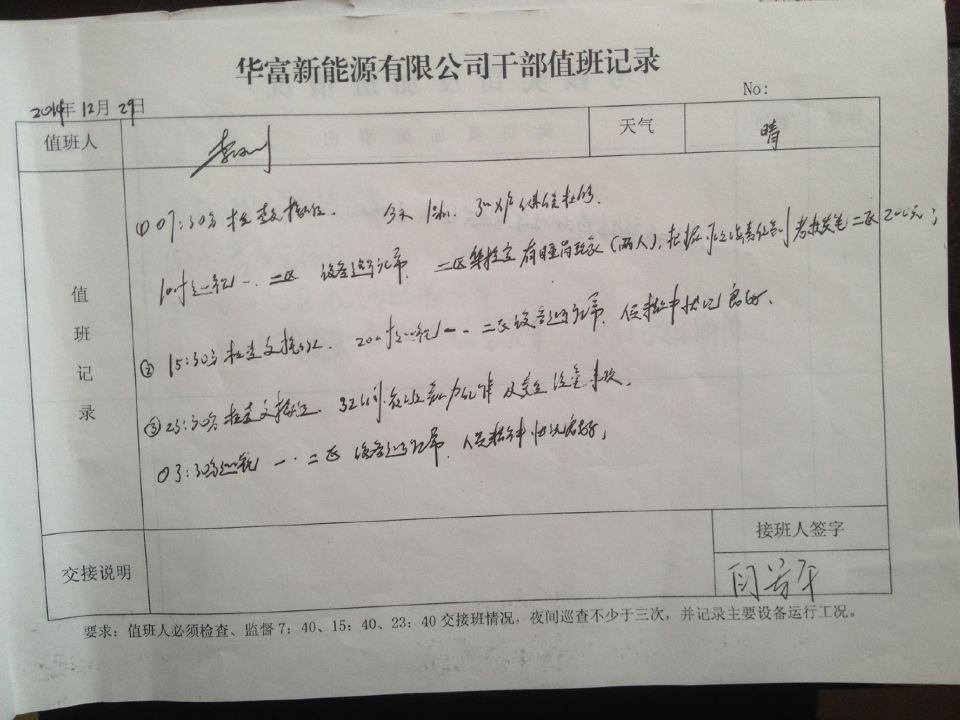 华富新能源有限公司干部值班记录
2014年12月29日 No:
值班人 天气 晴
值班记录
①07:30分检查交接班. 今天1#机. 3#炉 停
10时巡视一.二区 设备运行正常. 二区集控室有睡岗现象(两人), 根据 考核 二区200元;
②15:30分检查交接班. 20时巡视一.二区设备运行正常. 人员精神状况良好.
③23:30分检查交接班. 及
03:30分巡视一.二区设备运行正常. 人员精神状况良好;
交接说明 接班人签字
要求:值班人必须检查、监督7:40、15:40、23:40交接班情况,夜间巡查不少于三次,并记录主要设备运行工况。